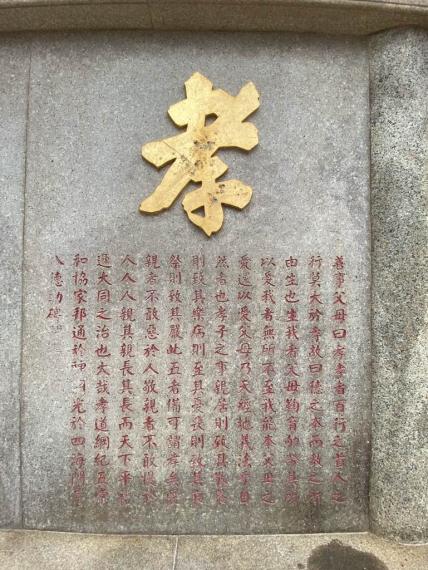 孝
善事父母曰孝孝者百行之首人之
行莫大於孝故曰德之本而教之所
由生也生我者父母鞠育劬勞其所
以愛我者無所不至我能本父母之
愛還以愛父母乃天經地義法乎自
然者也孝子之事親居則致其敬養
則致其樂病則至其憂喪則致其哀
祭則致其嚴此五者備可謂孝矣愛
親者不敢惡於人敬親者不敢慢於
人人人親其親長其長而天下平
大同之治也大哉孝道綱紀
和協家邦通於神明光於四海
德